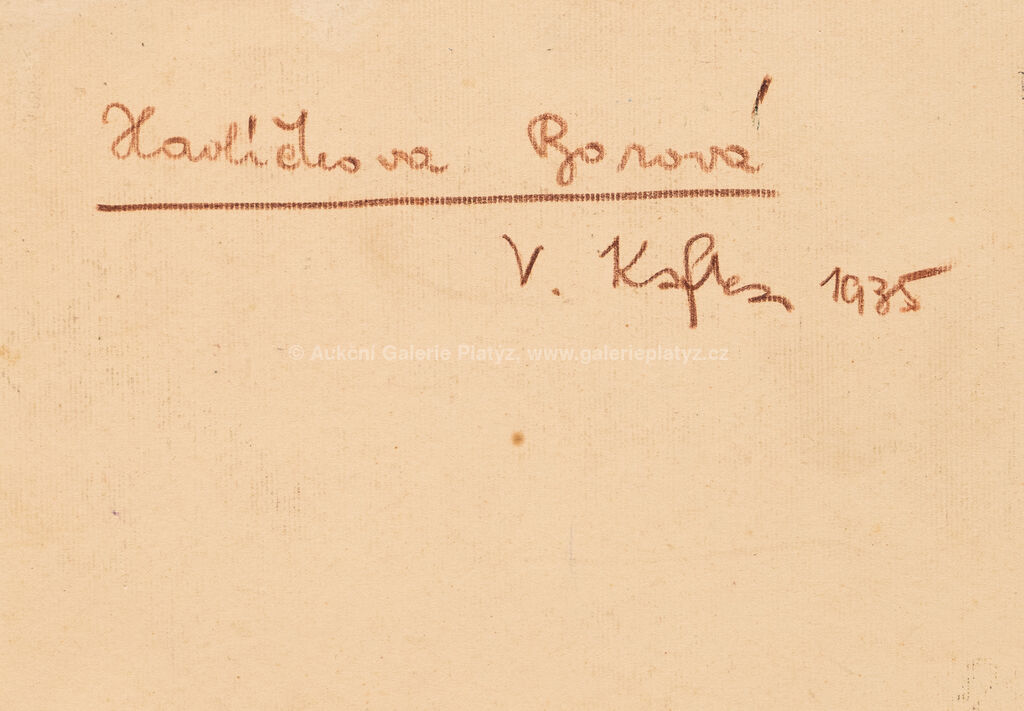 Havlíčkova Borová
V. Kafka 1935
© Aukční Galerie Platýz, www.galerieplatyz.cz